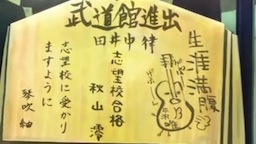 武道館進出
田井中律
生涯満腹
平沢唯
志望校合格
秋山澪
志望校に受かり
ますように
琴吹紬